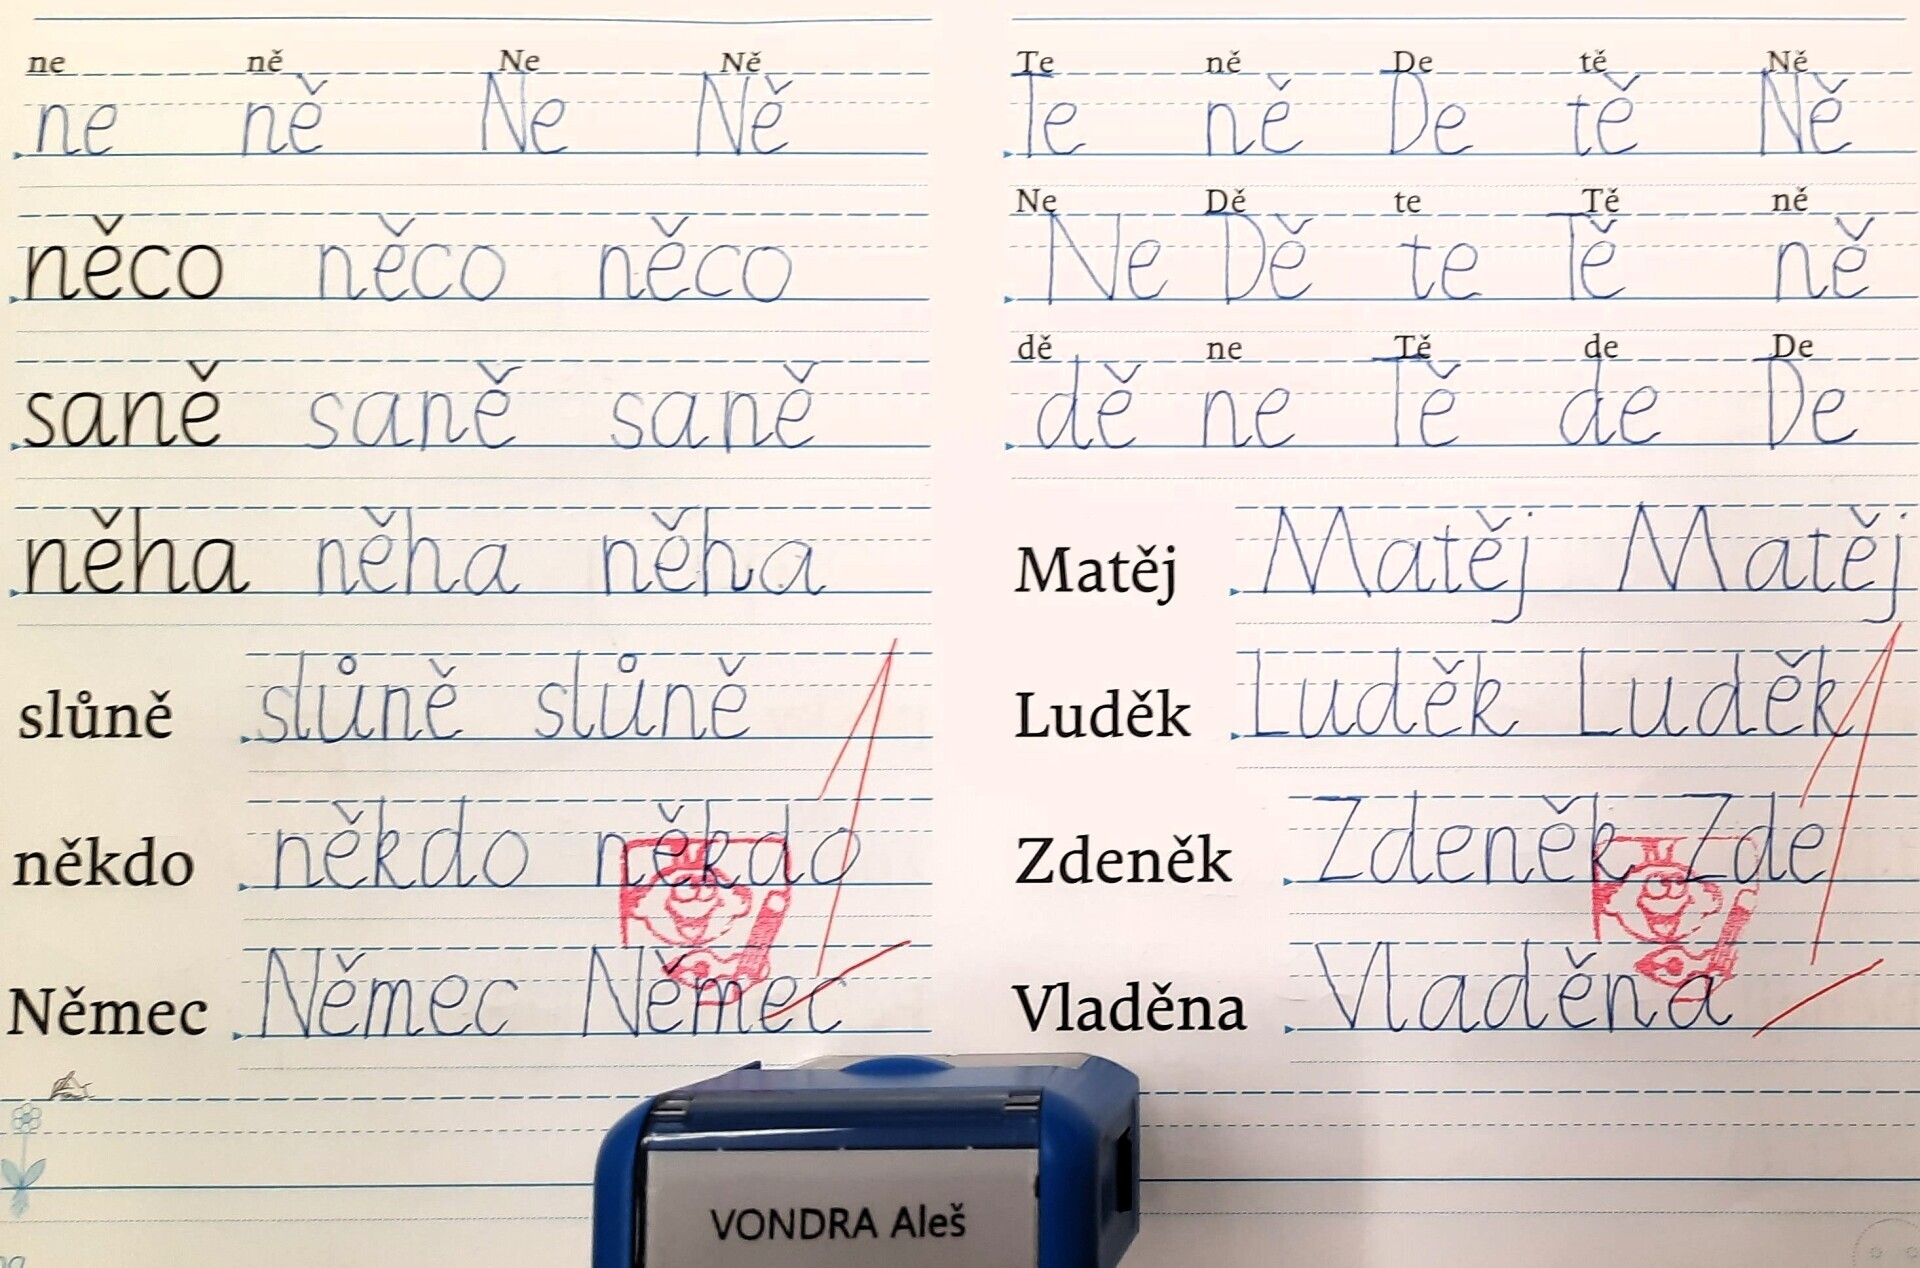 ne ně Ne Ně
ne ně Ne Ně
něco něco něco
saně saně saně
něha něha něha
slůně slůně slůně
někdo někdo někdo
Němec Němec Němec
Te ně De tě Ně
Te ně De tě Ně
Ne Dě te Tě ně
Ne Dě te Tě ně
dě ne Tě de De
dě ne Tě de De
Matěj Matěj Matěj
Luděk Luděk Luděk
Zdeněk Zdeněk Zde
Vladěna Vladěna
1
1
VONDRA Aleš